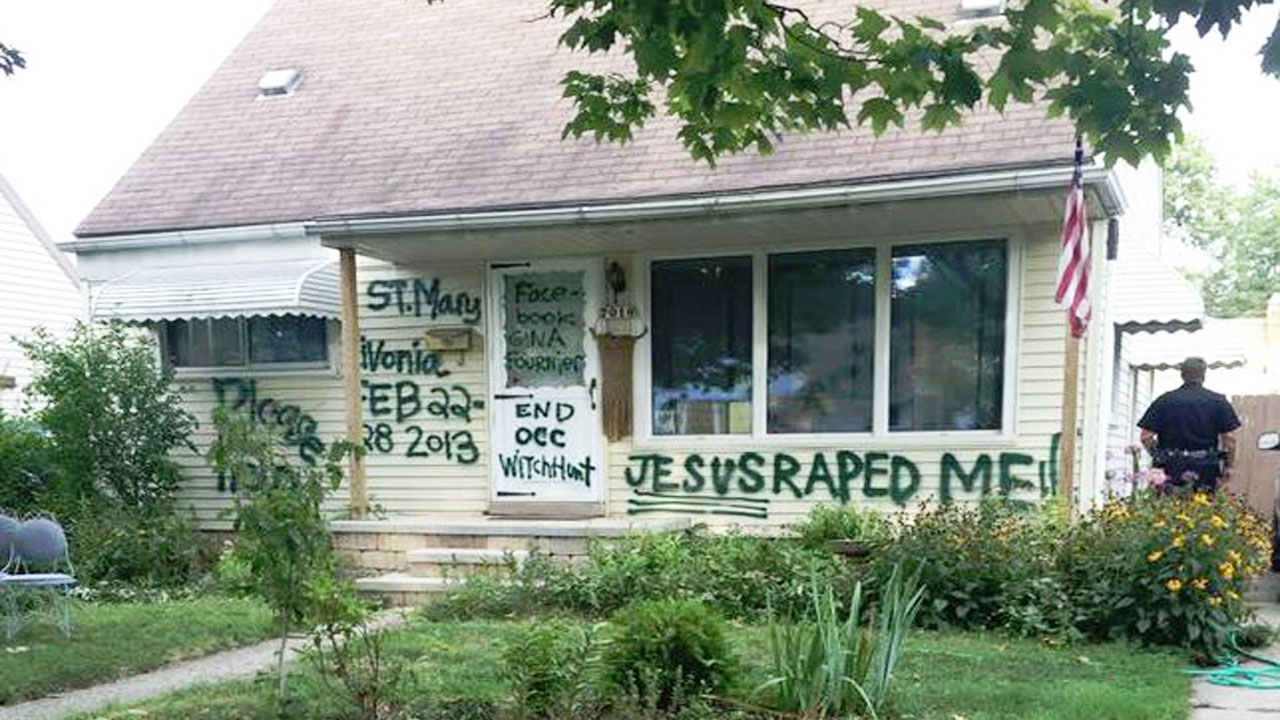 ST. Mary
iVonia
FEB 22-
28 2013
Please
Face-
book
GINA
Fournier
END
OCC
WITCHunt
JESUS RAPED ME!!